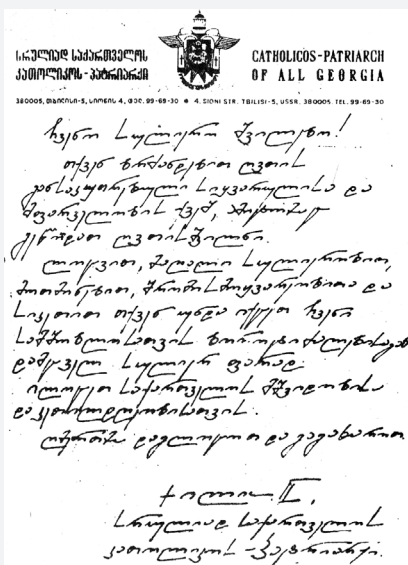 სრულიად საქართველოს
კათოლიკოს-პატრიარქი
CATHOLICOS-PATRIARCH
OF ALL GEORGIA
380005, თბილისი-5, სიონის 4, ტელ. 99-69-30 ● 4. SIONI STR. TBILISI-5, USSR. 380005. TEL. 99-69-30
ჩვენო სულიერო შვილებო!
თქვენ ბრძანდებით ღვთის
განსაკუთრებული სიყვარულისა და
მფარველობის ქვეშ, ამიტომაც
გეწოდათ ღვთისშვილნი.
ლოცვით, მაღალი სულიერებით,
მოთმინებით, შრომისმოყვარეობითა და
სიკეთით თქვენ უნდა იქცეთ ჩვენი
სამშობლოსათვის ბოროტი ძალებისაგან
დამცველ სულიერ ფარად.
ილოცეთ საქართველოს მშვიდობისა
და კეთილდღეობისათვის.
ღმერთმა დაგლოცოთ და გაგახაროთ.
+ ილია II,
სრულიად საქართველოს
კათოლიკოს-პატრიარქი.